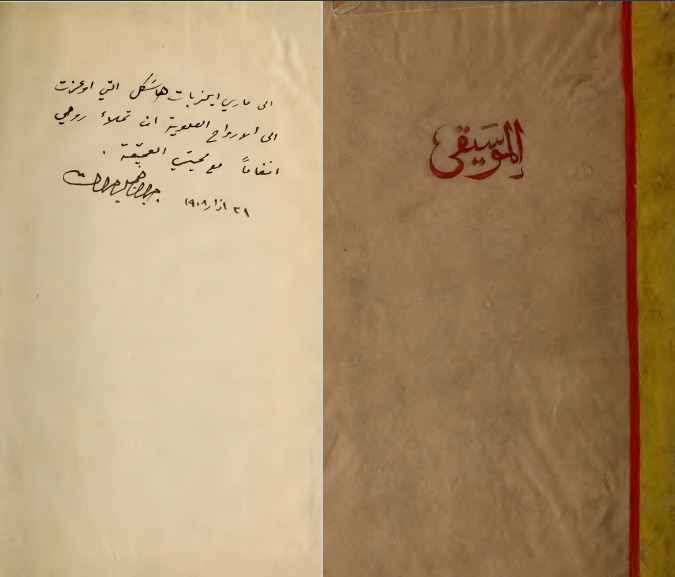 الى ماري ايلزبات هاسكل التي اوعزت
الى الارواح العلوية ان تملأ روحي
انغاماً مع محبتي العميقة .
جبران خليل جبران
٢١ اذار ١٩٠٨
الموسيقى